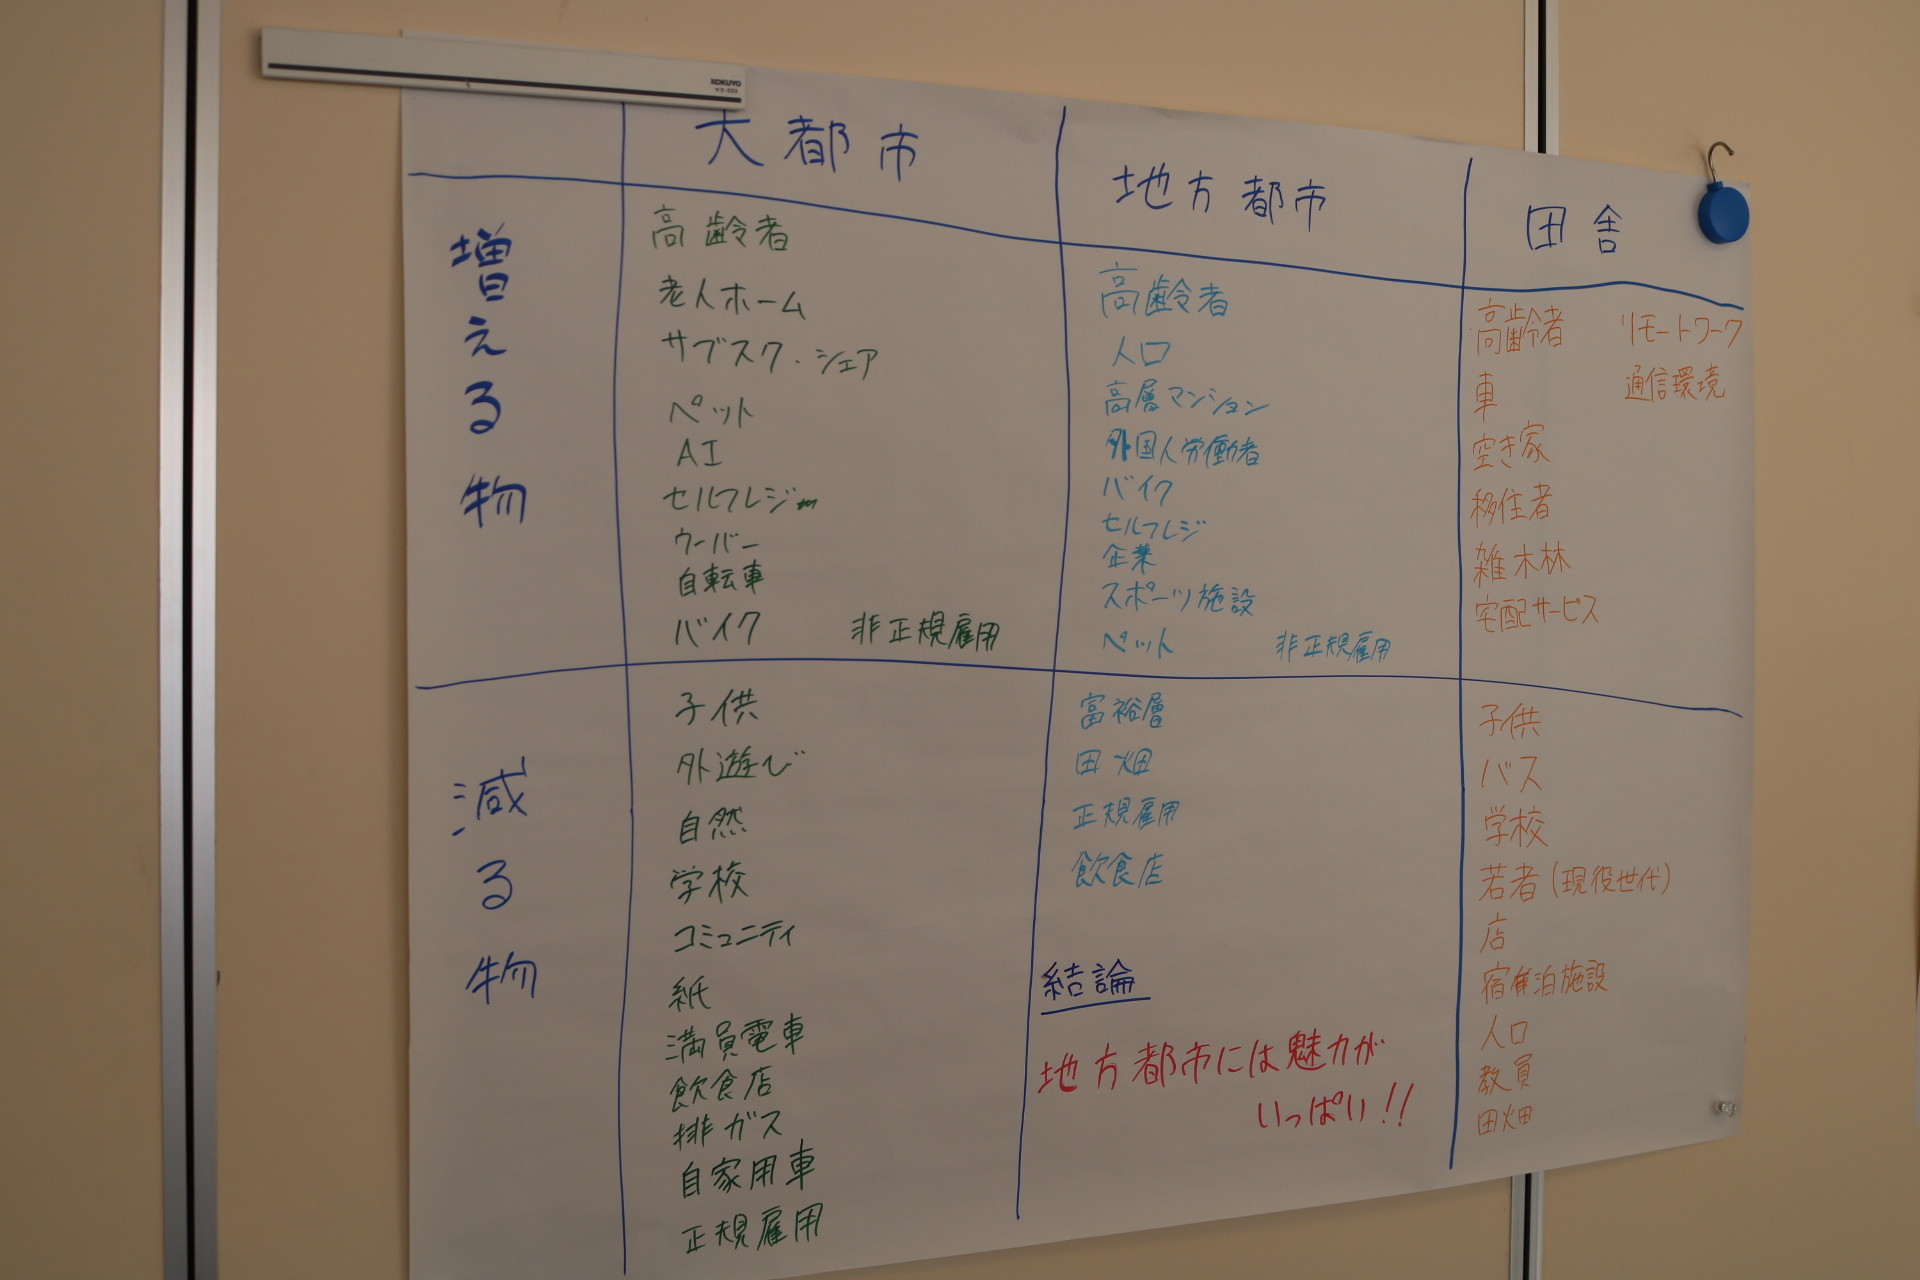 KOKUYO
大都市
地方都市
田舎
増える物
高齢者
老人ホーム
サブスク・シェア
ペット
AI
セルフレジ
ウーバー
自転車
バイク 非正規雇用
高齢者
人口
高層マンション
外国人労働者
バイク
セルフレジ
企業
スポーツ施設
ペット 非正規雇用
高齢者 リモートワーク
車 通信環境
空き家
移住者
雑木林
宅配サービス
減る物
子供
外遊び
自然
学校
コミュニティ
紙
満員電車
飲食店
排ガス
自家用車
正規雇用
富裕層
田畑
正規雇用
飲食店
結論
地方都市には魅力が
いっぱい!!
子供
バス
学校
若者(現役世代)
店
宿泊施設
人口
教員
田畑